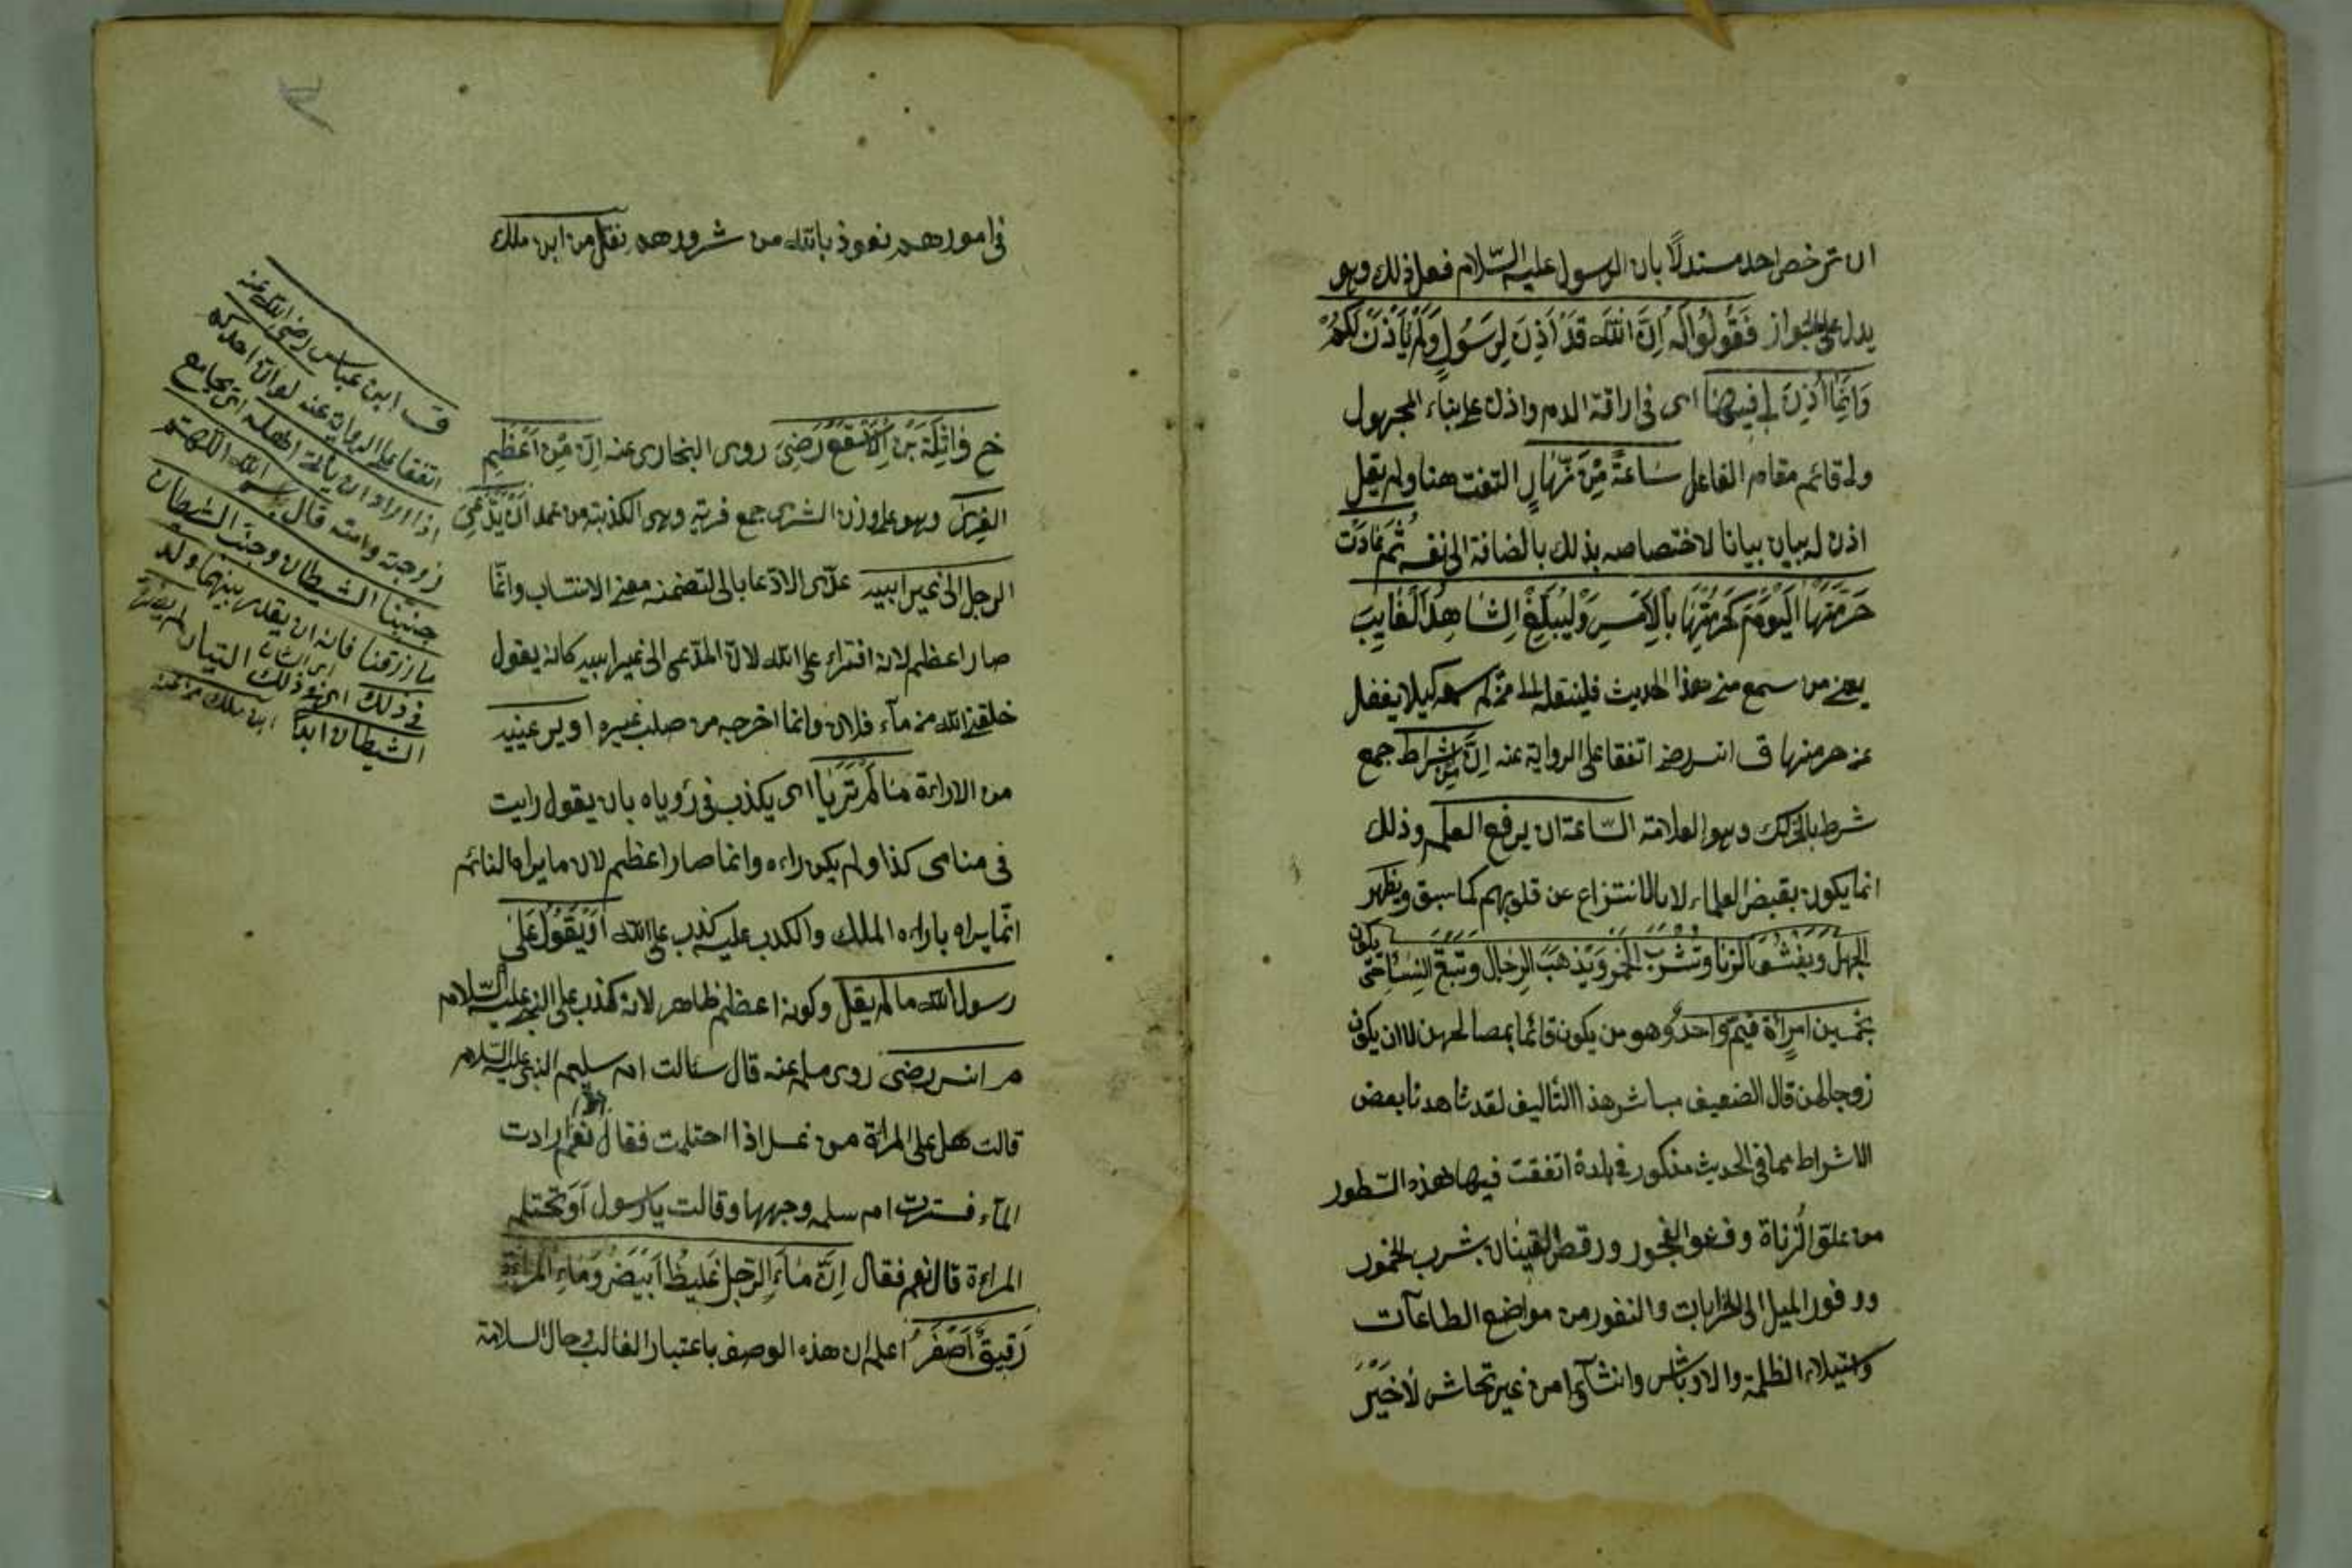 ان ترخص احد مستدلًا بان الرسول عليه السّلام فعل ذلك وهو
يدل على الجواز فَقُولُوا لَهُ اِنَّ اللّٰهَ قَدْ اَذِنَ لِرَسُولٍ وَلَمْ يَأْذَنْ لَكُمْ
وَاِنَّمَا اُذِنَ لِي فِيهَا اى فى اراقة الدم واذن على بناء المجهول
ولى قائم مقام الفاعل سَاعَةً مِنْ نَهَارٍ التفت هنا ولم يقل
اذن له بيان بيانا لاختصاصه بذلك بالضافة الى نفسه ثُمَّ عَادَتْ
حُرْمَتُهَا الْيَوْمَ كَحُرْمَتِهَا بِالْاَمْسِ وَلْيُبَلِّغِ الشَّاهِدُ الْغَايِبَ
يعنى من سمع منى هذا الحديث فلينقله الى من لم يسمعه كيلا يغفل
عن حرمتها ق انس رضى اتفقا على الرواية عنه اِنَّ مِنْ اَشْرَاطِ جمع
شرط بالتحريك وهو العلامة السّاعة ان يرفع العلم وذلك
انما يكون بقبض العلماء لا بالانتزاع عن قلوبهم كما سبق ويظهر
الجهل وَيَفْشُوَ الزنا وَتُشْرَبَ الْخَمْرُ وَيَذْهَبَ الرِجَالُ وتَبْقَى النِسَاءُ حَتَّى يكون
بخمسين امرأة قيمٌ واحدٌ وهو من يكون قائما بمصالحهن لا ان يكون
زوجا لهن قال الضعيف مباشر هذا التأليف لقد شاهدنا بعض
الاشراط مما فى الحديث مذكور فى بلدة اتفقت فيها هذه السّطور
من علق الزناة وفشو الفجور ورقص القينات بشرب الخمور
ووفور الميل الى الخرابات والنفور من مواضع الطاعات
واستيلاء الظلمة والاوباش من غير تحاش لاخير
فى امورهم نعوذ بالله من شرورهم نقل من ابن ملك
خ وَاثِلَةَ بْنِ الْاَسْقَعِ رَضِىَ روى البخارى عنه اِنَّ مِنْ اَعْظَمِ
الفِرَى وهو على وزن الشرى جمع فرية وهى الكذبة من عمد اَنْ يَدَّعِىَ
الرجل الى غير ابيه عدّى الادّعا بالى لتضمنه معنى الانتساب وانّما
صار اعظم لانه افتراء على الله لانّ المدّعى الى غير ابيه كانه يقول
خلقنى الله من مآء فلان وانما اخرجه من صلب غيره او يرى عينيه
من الاراءة مَا لَمْ تَرَيَا اى يكذب فى رؤياه بان يقول رايت
فى منامى كذا ولم يكن راءه وانما صار اعظم لان ما يراه النائم
انّما يراه باراءه الملك والكذب عليه كذب على الله اَوْ يَقُولُ عَلَى
رسول الله ما لم يقل وكونه اعظم ظاهر لانه كذب على النبى عليه السّلام
م انس رضى روى مسلم عنه قال سئالت ام سليم النبى عليه السّلام
قالت هل على المرأة من غسل اذا احتلمت فقال نعم اذا رات
المآء فسترت ام سلمه وجهها وقالت يا رسول اَوَ تحتلم
المراءة قال نعم فقال اِنَّ مَآءَ الرَّجُلِ غَلِيظٌ اَبْيَضُ وَمَاءِ الْمَرْاَةِ
رَقِيقٌ اَصْفَرُ اعلم ان هذه الوصف باعتبار الغالب وحال السلامة
ق ابن عباس رضى الله عنه
اتفقا على الرواية عنه لو انّ احدكم
اذا اراد ان يأتى اهله اى يجامع
زوجته وامته قال بسم الله اللّهمّ
جنّبنا الشيطان وجنب الشيطان
ما رزقنا فانه ان يقدر بينهما ولد
فى ذلك اى فى ذلك التيان لم يضرّه
الشيطان ابدًا ابن ملك